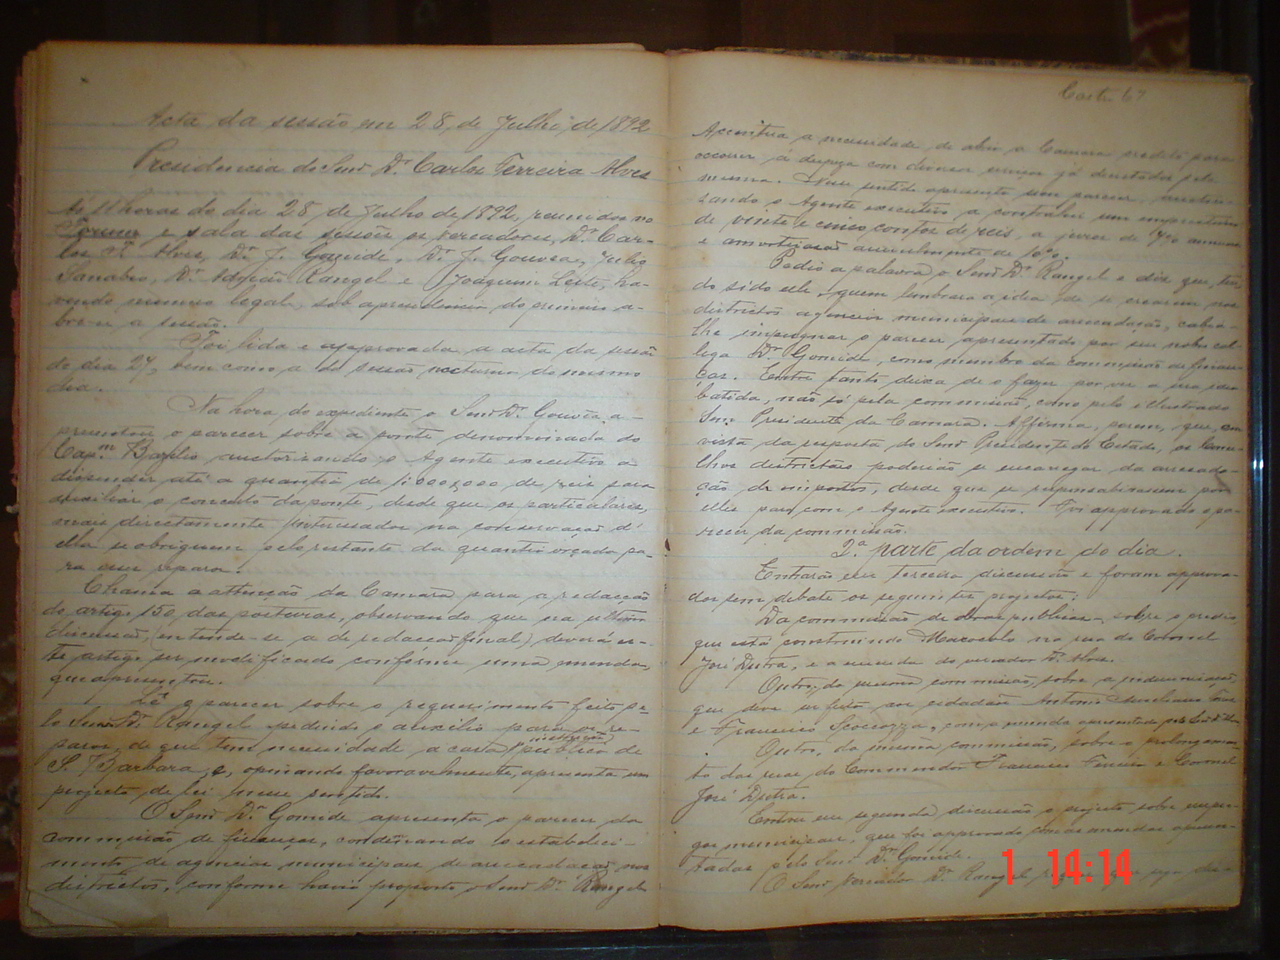 Acta da sessão em 28, de Julho de 1892
Presidencia do Senr. Dr. Carlos Ferreira Alves
Ás 11 horas do dia 28 de Julho de 1892, reunidos no
Forum e sala das sessões os vereadores, Dr. Car-
los Fa. Alves, Dr. J. Gomide, Dr. J. Gouvêa, Julio
Sanabio, Dr. Rangel e Joaquim Leite, ha-
vendo numero legal, sob a presidencia do primeiro a-
bre-se a sessão.
Foi lida e approvada a acta da sessão
do dia 27, bem como a da sessão nocturna do mesmo
dia.
Na hora do expediente o Senr. Dr. Gouvêa a-
presentou o parecer sobre a ponte denominada do
Capm. Bazilio auctorizando o Agente executivo a
dispender até a quantia de 1:000,000 de reis para
auxiliar o concerto da ponte, desde que os particulares,
mais directamente interessados na conservação d'
ella se obriguem pelo restante da quantia orçada pa-
ra esse reparo.
Chama a attenção da Camara para a redacção
do artigo 150 das posturas, observando que na ultima
discussão, (entende-se a de redacção final) deverá es-
te artigo ser modificado conforme uma emenda,
que apresentou.
Lê o parecer sobre o requerimento feito pe-
lo Senr. Dr. Rangel pedindo o auxilio para os re-
paros, de que tem necessidade a casa publica de
instrucção
S. Barbara, e, opinando favoravelmente, apresenta um
projecto de lei nesse sentido.
O Senr. Dr. Gomide apresenta o parecer da
commissão de finanças, considerando o estabeleci-
mento de agencias municipaes de arrecadação nos
districtos, conforme havia proposto o Senr. Dr. Rangel
Castro 67
a necessidade de abrir a Camara credito para
occorrer á despeza com diversos serviços já decretados pela
mesma. Nesse sentido apresenta um parecer, auctori-
zando o Agente executivo a contrahir um emprestimo
de vinte e cinco contos de reis, a juros de 7% annuaes
e amortisação annualmente de 10%.
Pedio a palavra o Senr. Dr. Rangel e diz que, ten-
do sido elle, quem lembrara a idéa de se crearem nos
districtos agencias municipaes de arrecadação, cabia-
lhe impugnar o parecer apresentado por seu nobre col-
lega Dr. Gomide, como membro da commissão de finan-
ças. Entre tanto deixa de o fazer por ver a sua idéa
batida, não só pela commissão, como pelo illustrado
Snr. Presidente da Camara. Affirma, porem, que, em
vista da resposta do Senr. Presidente do Estado, os
districtaes poderião se encarregar da arrecada-
ção de impostos, desde que se responsabilisassem por
elles para com o Agente executivo. Foi approvado o pa-
recer da commissão.
2.a parte da ordem do dia.
Entrarão em terceira discussão e foram approva-
dos sem debate os seguintes projectos:
Da commissão de obras publicas, sobre o predio
que está construindo na rua do Coronel
José Dutra, e a emenda do vereador Dr. Alves.
Outro, da mesma commissão, sobre a indemnisação,
que deve ser feita aos cidadãos Antonio
e Francisco com a emenda apresentada pelo Senr. Dr.
Outro, da mesma commissão, sobre o prolongamen-
to das ruas do Commendador Francisco e Coronel
José Dutra.
Entrou em segunda discussão o projecto sobre empre-
gos municipaes, que foi approvado com as emendas apresen-
tadas pelo Senr. Dr. Gomide.
O Senr. Vereador Dr. Rangel
1 14:14